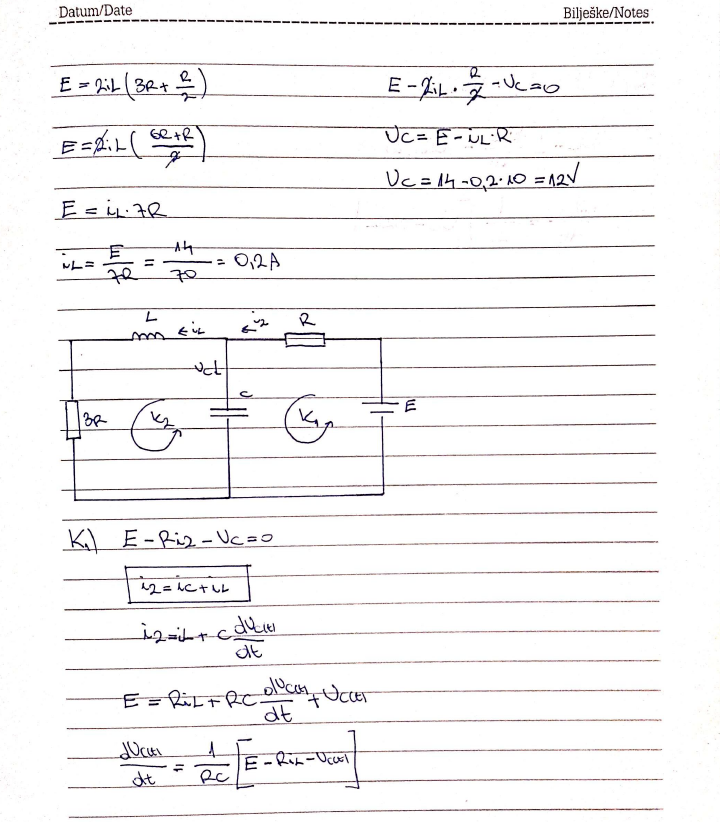 Datum/Date Bilješke/Notes
E = 2iL(3R + R/2)
E = 2iL((6R+R)/2)
E = iL·7R
iL = E/7R = 14/70 = 0,2A
E - 2iL · R/2 - UC = 0
UC = E - iL·R
UC = 14 - 0,2·10 = 12V
L ← iL ← i2 R
UC↓
3R K2 C K1 E
K1) E - Ri2 - UC = 0
i2 = iC + iL
i2 = iL + C dUC(t)/dt
E = RiL + RC dUC(t)/dt + UC(t)
dUC(t)/dt = 1/RC [E - RiL - UC(t)]